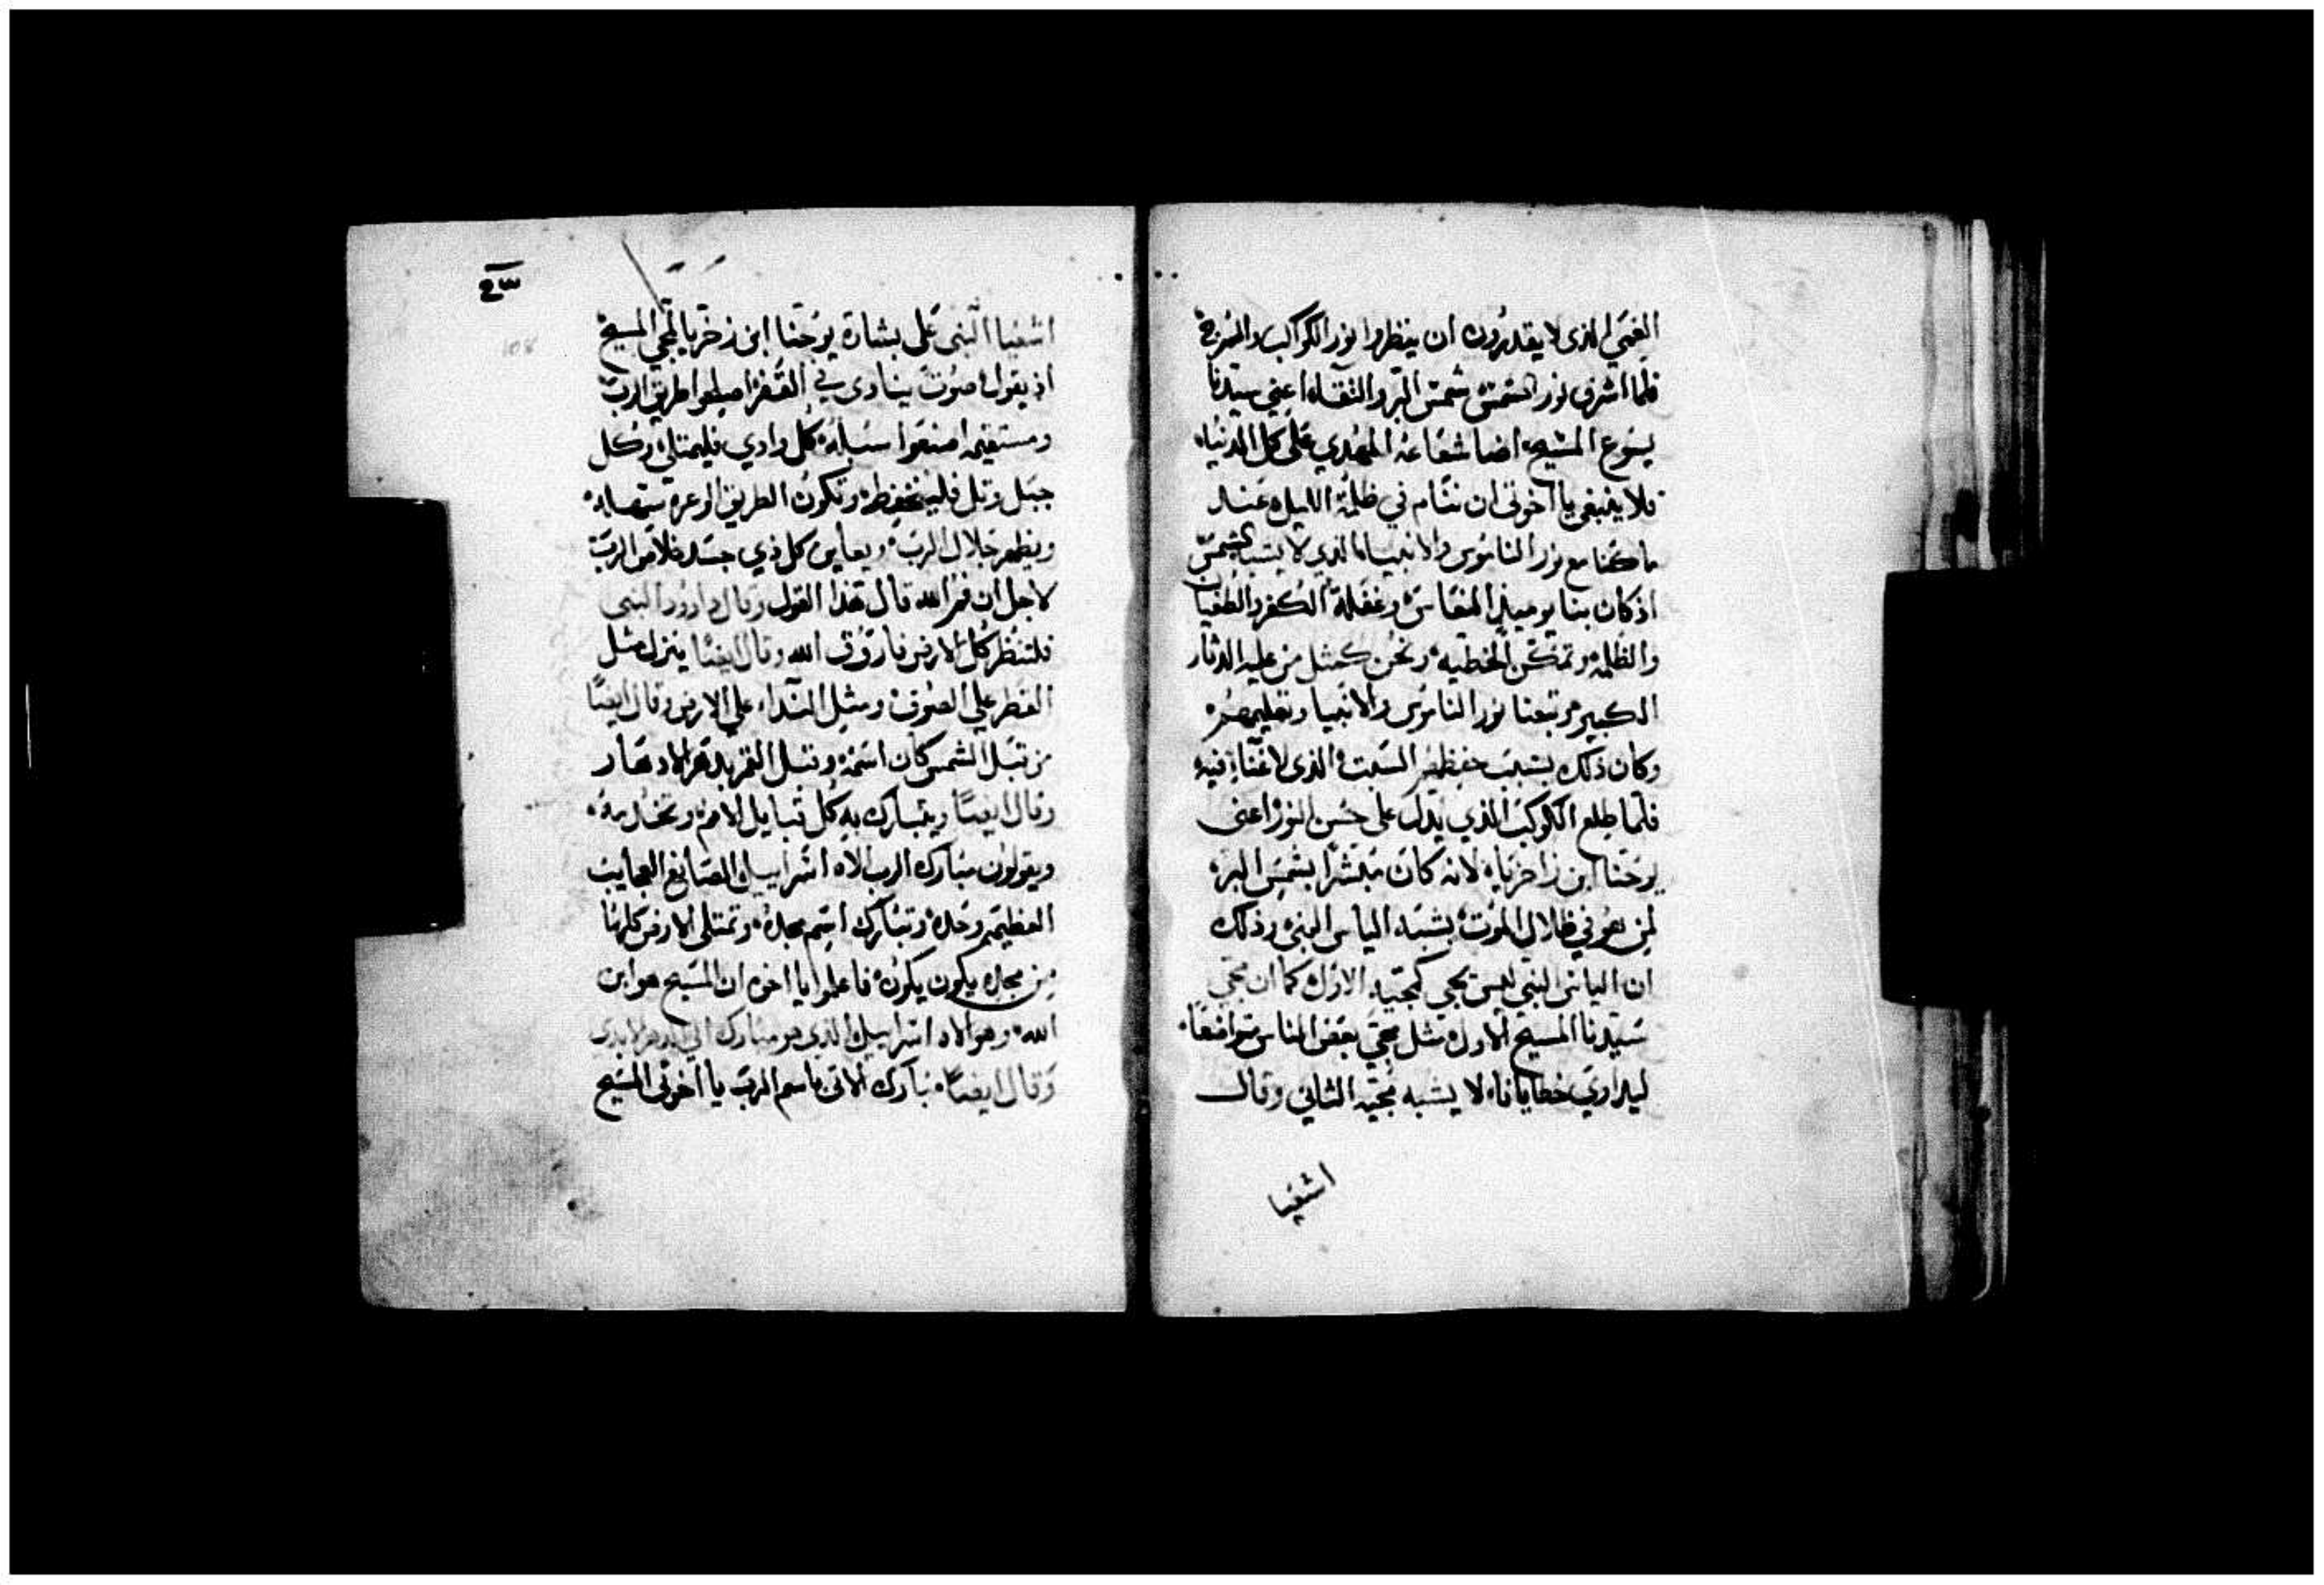 العمي الذى لا يقدرون ان ينظروا نور الكواكب والسرج
فلما اشرق نور الشمس شمس البر والنقاه اعني سيدنا
يسوع المسيح اضا شعاعه المهدي على كل الدنياه
فلا ينبغي يا اخوتى ان ننام في ظلمة الليل عند
ما كنا مع نور الناموس والانبيا الذى لا يشبه الشمس
اذ كان بنا يوميذ النعاس وغفلة الكفر والطغيان
والظلمه وتمكن الخطيه ونحن كمثل من عليه الدثار
الكبير وتبعنا نور الناموس والانبيا وتعليمهم
وكان ذلك بسبب حفظهم السبت الذى لا غناء فيه
فلما طلع الكوكب الذي يدل على حسن النور اعنى
يوحنا ابن زاخرياه لانه كان مبشرا بشمس البر
لمن هو في ظلال الموت يشبه الياس النبى وذلك
ان الياس النبى ليس يجى كمجيه الاول كما ان مجى
سيدنا المسيح الاول مثل مجي بعض الناس متواضعا
ليداوي خطايانا لا يشبه مجيه الثاني وقال
اشعيا
اشعيا النبى على بشارة يوحنا ابن زخريا لمجي المسيح
اذ يقول صوت ينادى في القفر اصلحوا طريق الرب
ومستقيمه اصنعوا سبله كل وادي فليمتلى وكل
جبل وتل فلينخفض وتكون الطريق الوعره سهله
ويظهر جلال الرب ويعاين كل ذي جسد خلاص الرب
لاجل ان فم الله قال هذا القول وقال داوود النبى
فلتنظر كل الارض فاروق الله وقال ايضا ينزل مثل
القطر علي الصوف ومثل الندا على الارض وقال ايضا
من قبل الشمس كان اسمه وقبل القمر بدهر الادهار
وقال ايضا ويتبارك به كل قبايل الامم وتحمده
ويقولون مبارك الرب الاه اسراييل الصانع العجايب
العظيمه وحده وتبارك اسم مجده وتمتلى الارض كلها
من مجده يكون يكون فاعلموا يا اخوه ان المسيح هو ابن
الله وهو الاه اسراييل الذى هو مبارك الى الدهر الابدى
وقال ايضا مبارك الاتى باسم الرب يا اخوتى المسيح